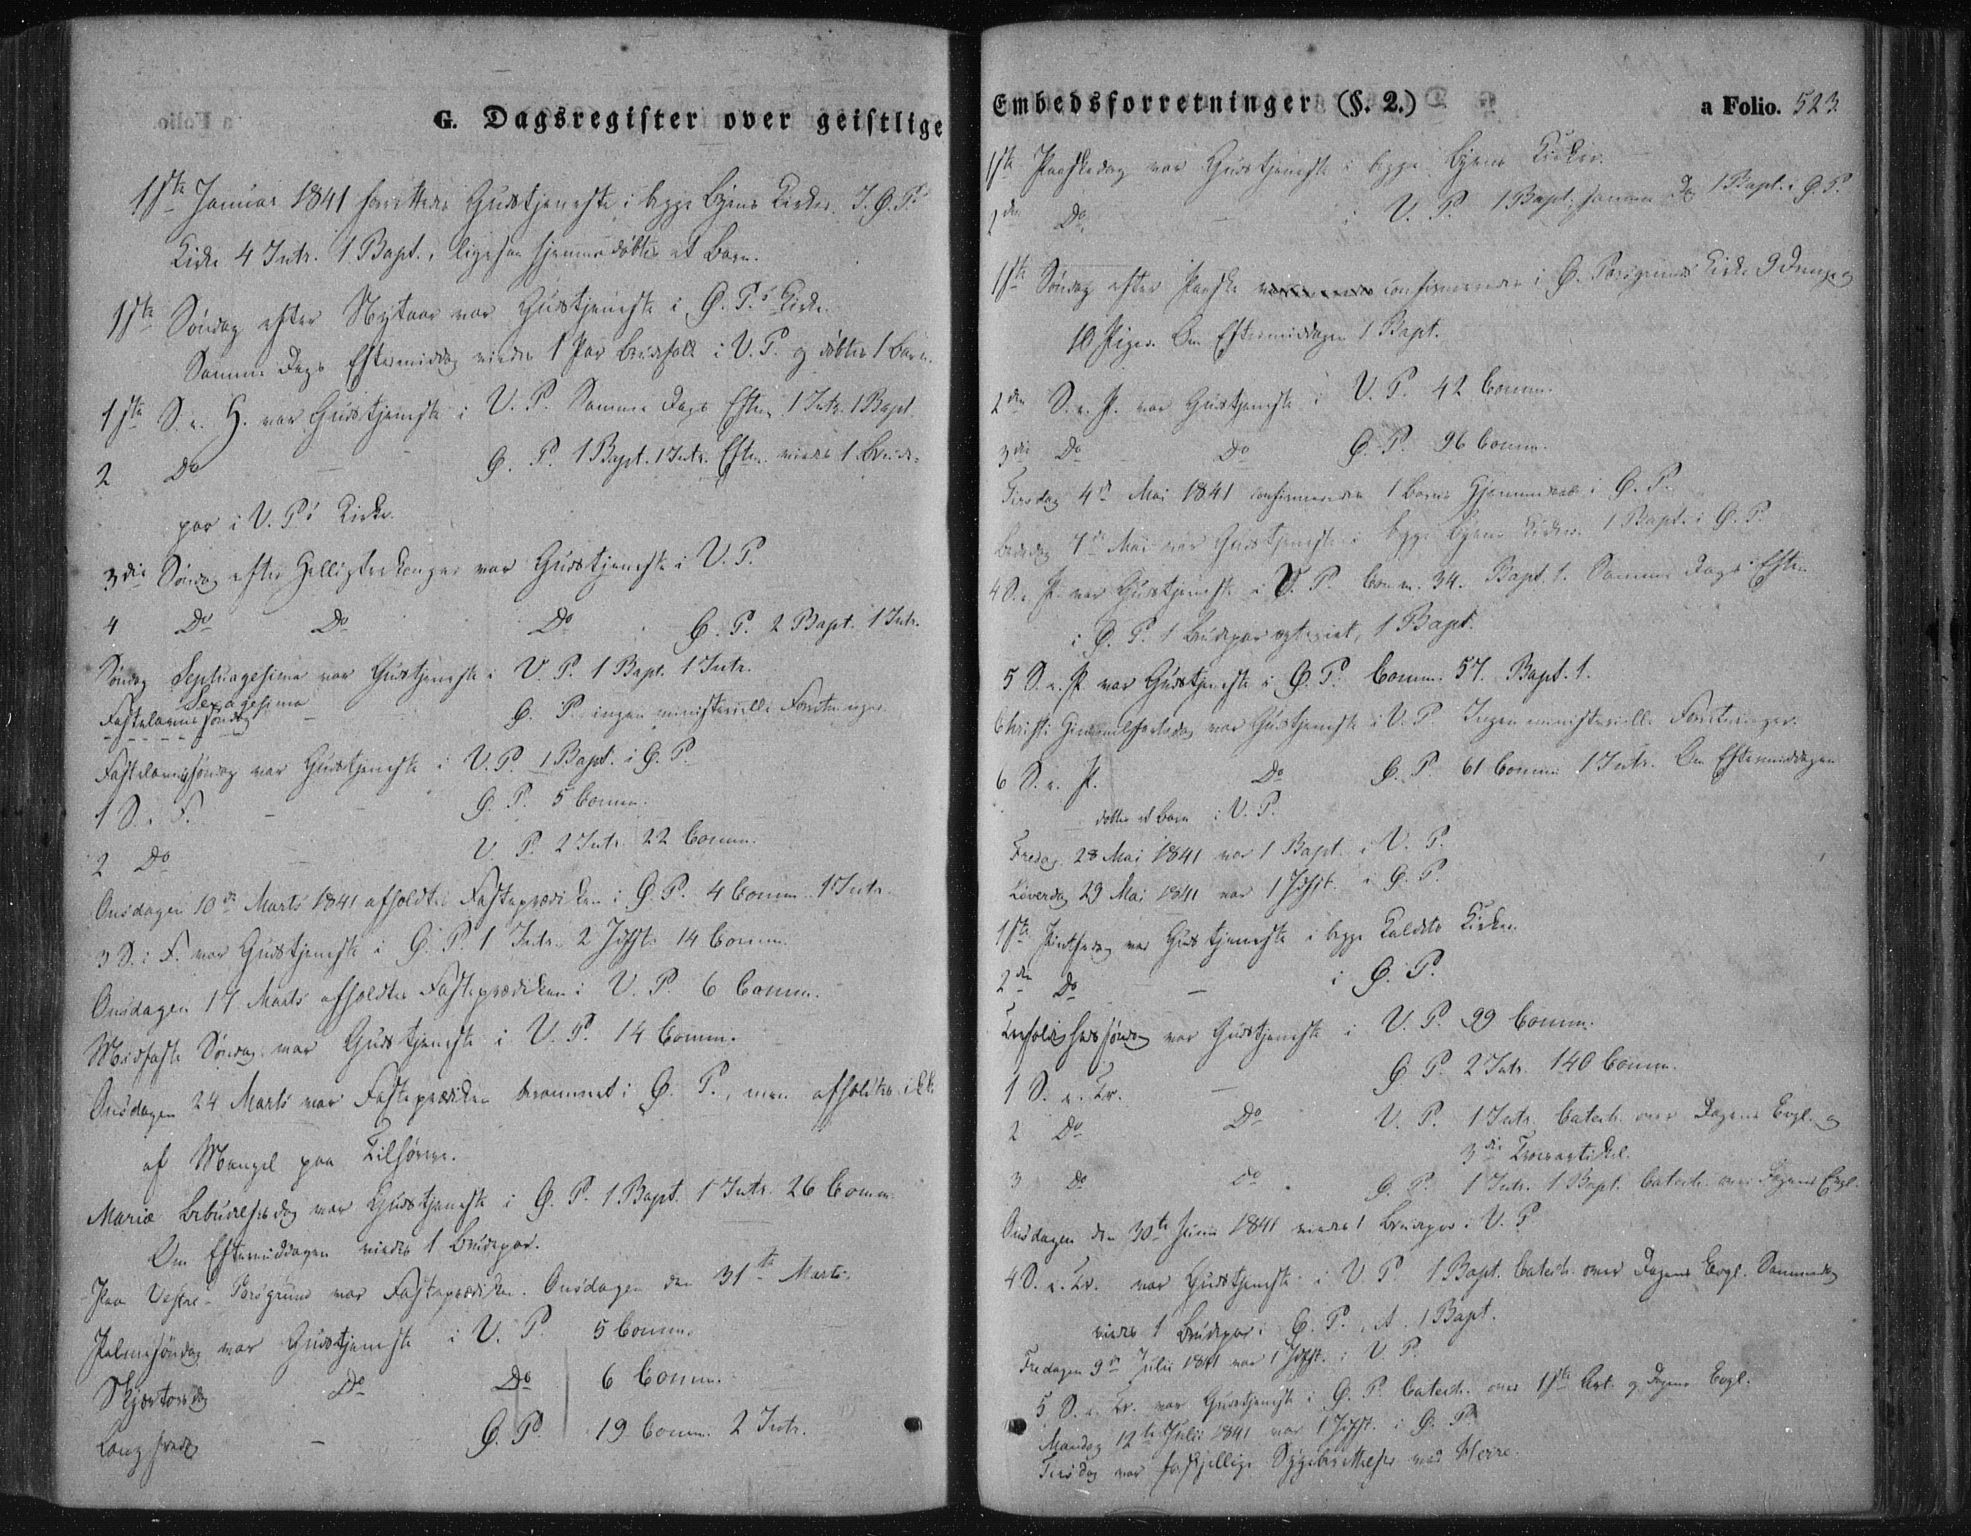 G. Dagsregister over geistlige
1ste Januar 1841 forrettedes Gudstjeneste i begge Byens Kirker. I Ø. P.s
Kirke 4 Intr. 1 Bapt., ligesom hjemmedøbtes et Barn.
1ste Søndag efter Nytaar var Gudstjeneste i Ø. P.s Kirke.
Samme Dags Eftermiddag viedes 1 Par Brudefolk i V. P. og døbtes 1 Barn.
1ste S. e. H. var Gudstjeneste i V. P. Samme Dags Efterm. 1 Intr. 1 Bapt.
2 Do — Ø. P. 1 Bapt. 1 Intr. Efterm. viedes 1 Brude-
par i V. P.s Kirke.
3die Søndag efter Helligtrekonger var Gudstjeneste i V. P.
4 Do Do Do Ø. P. 2 Bapt. 1 Intr.
Søndag Septuagesima var Gudstjeneste i V. P. 1 Bapt. 1 Intr.
Sexagesima
Fastelavnssøndag — Ø. P. ingen ministerielle Forretninger.
Fastelavnssøndag var Gudstjeneste i V. P. 1 Bapt. i Ø. P.
1 S. i F. — Ø. P. 5 Comm.
2 Do — V. P. 2 Intr. 22 Comm.
Onsdagen 10de Marts 1841 afholdtes Fasteprædiken i Ø. P. 4 Comm. 1 Intr.
3 S. i F. var Gudstjeneste i Ø. P. 1 Intr. 2 14 Comm.
Onsdagen 17 Marts afholdtes Fasteprædiken i V. P. 6 Comm.
Midfaste Søndag var Gudstjeneste i V. P. 14 Comm.
Onsdagen 24 Marts var Fasteprædiken berammet i Ø. P., men afholdtes ikke
af Mangel paa Tilhørere.
Mariæ Bebudelsesdag var Gudstjeneste i Ø. P. 1 Bapt. 1 Intr. 26 Comm.
Om Eftermiddagen viedes 1 Brudepar.
Paa Vestre-Porsgrund var Fasteprædiken Onsdagen den 31te Marts.
Palmesøndag var Gudstjeneste i V. P. 5 Comm.
Skjærtorsdag Do Do 6 Comm.
Langfredag — Ø. P. 19 Comm. 2 Intr.
Embedsforretninger (§. 2.)
a Folio. 523.
1ste Paaskedag var Gudstjeneste i begge Byens Kirker.
2den Do — i V. P. 1 Bapt. samme Dag 1 Bapt. i Ø. P.
1ste Søndag efter Paaske confirmeredes i Ø. Porsgrunds Kirke 9 Drenge og
10 Piger. Om Eftermiddagen 1 Bapt.
2den S. e. P. var Gudstjeneste i V. P. 42 Comm.
3die Do Do Ø. P. 96 Comm.
Tirsdag 4de Mai 1841 confirmeredes 1 Barns Hjemmedaab i Ø. P.
Bededag 7de Mai var Gudstjeneste i begge Byens Kirker. 1 Bapt. i Ø. P.
4 S. e. P. var Gudstjeneste i V. P. Comm. 34. Bapt. 1. Samme Dags Efterm.
i Ø. P. 1 Brudepar copuleret, 1 Bapt.
5 S. e. P. var Gudstjeneste i Ø. P. Comm. 57. Bapt. 1.
Christi Himmelfartsdag var Gudstjeneste i V. P. Ingen ministerielle Forretninger.
6 S. e. P. Do Ø. P. 61 Comm. 1 Intr. Om Eftermiddagen
døbtes et Barn i V. P.
Fredag 28 Mai 1841 var 1 Bapt. i V. P.
Løverdag 29 Mai 1841 var 1 i Ø. P.
1ste Pintsedag var Gudstjeneste i begge Kaldets Kirker.
2den Do — i Ø. P.
Trefoldighedssøndag var Gudstjeneste i V. P. 99 Comm.
1 S. e. Tr. — Ø. P. 2 Intr. 140 Comm.
2 Do Do V. P. 1 Intr. Catech. over Dagens Evgl. og
3die Troesartikel.
3 Do Do Ø. P. 1 Intr. 1 Bapt. Catech. over Dagens Evgl.
Onsdagen den 30te Juni 1841 viedes 1 Brudepar i V. P.
4 S. e. Tr. var Gudstjeneste i V. P. 1 Bapt. Catech. over Dagens Evgl. Sammedag
viedes 1 Brudepar i Ø. P. 1 Bapt.
Fredagen 9de Julii 1841 var 1 i V. P.
5 S. e. Tr. var Gudstjeneste i Ø. P. Catech. over 1ste Art. og Dagens Evgl.
Mandag 12te Julii 1841 var 1 i Ø. P.
Tirsdag var forskjellige Sygeberettelser ved